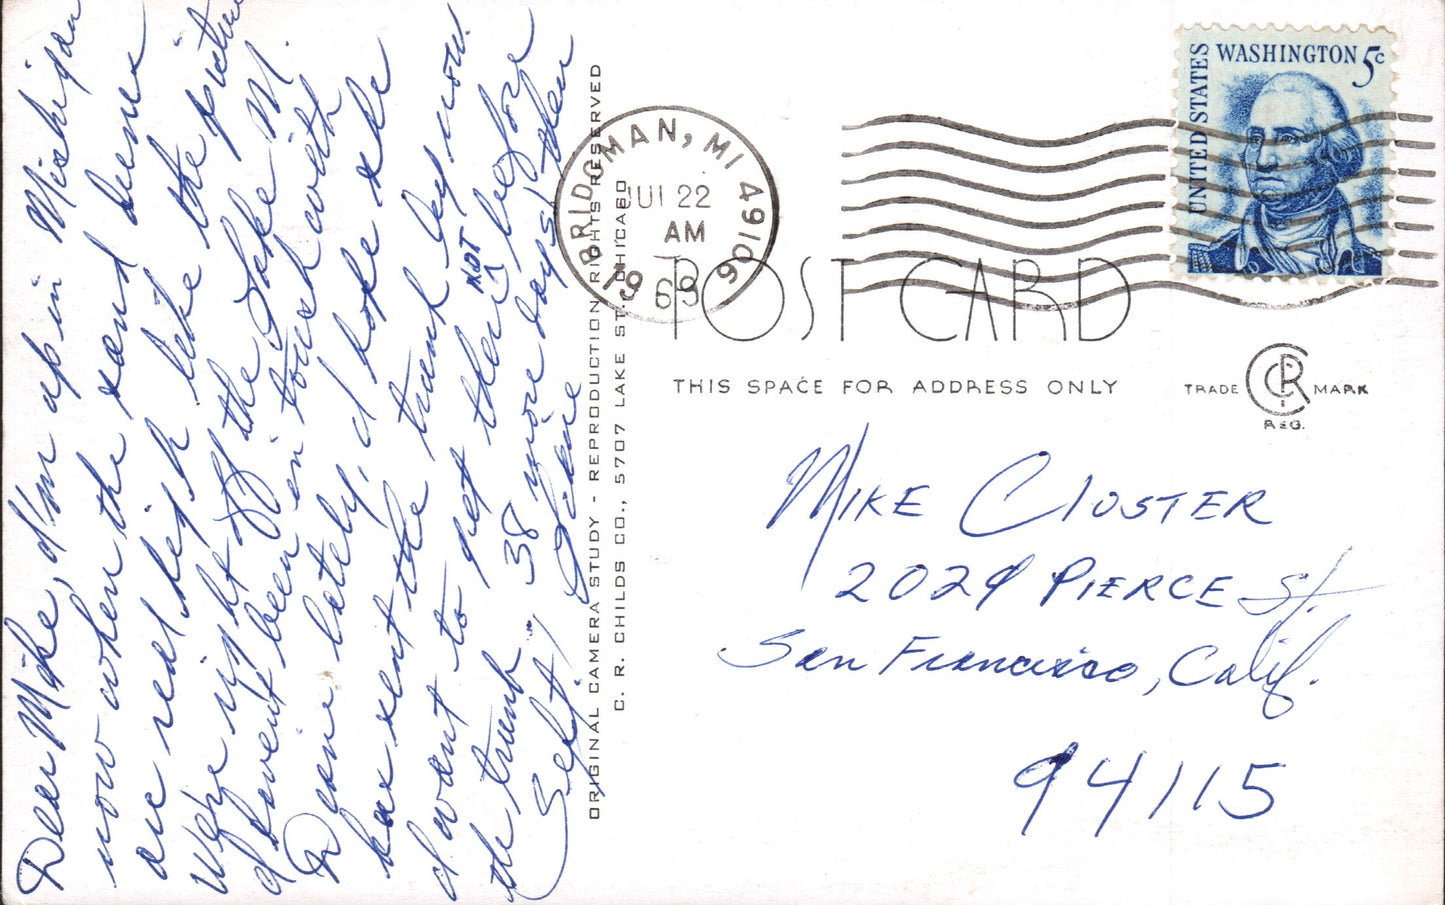 Dear Mike, I'm up in Michigan
now when the sand dunes
are real high like the picture
We're right off the Lake M.
I havent been in touch with
Deane lately, I hope she
has sent the trunk by now.
I want to get there NOT before
the trunk - 38 more days, then
Splitt,
UNITED STATES
WASHINGTON 5c
BRIDGMAN, MI 49106
JUL 22
AM
1969
POST CARD
THIS SPACE FOR ADDRESS ONLY
TRADE CRC MARK
REG.
MIKE CLOSTER
2029 PIERCE St.
San Francisco, Calif.
94115
ORIGINAL CAMERA STUDY - REPRODUCTION RIGHTS RESERVED
C. R. CHILDS CO., 5707 LAKE ST., CHICAGO